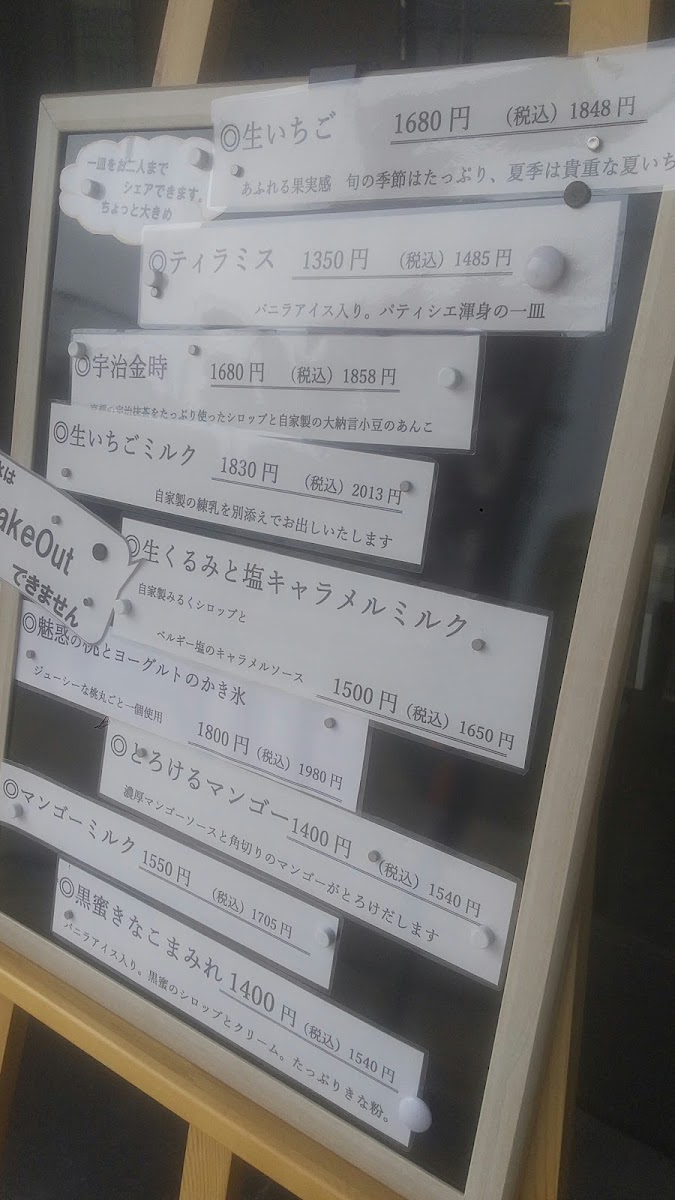 ◎生いちご 1680円 (税込) 1848円
あふれる果実感 旬の季節はたっぷり、夏季は貴重な夏いち
一皿をお二人まで
シェアできます。
ちょっと大きめ
◎ティラミス 1350円 (税込) 1485円
バニラアイス入り。パティシエ渾身の一皿
◎宇治金時 1680円 (税込) 1858円
の宇治抹茶をたっぷり使ったシロップと自家製の大納言小豆のあんこ
◎生いちごミルク 1830円 (税込) 2013円
自家製の練乳を別添えでお出しいたします
は
akeOut
できません
◎生くるみと塩キャラメルミルク
自家製みるくシロップと
ベルギー塩のキャラメルソース
1500円 (税込) 1650円
◎魅惑の桃とヨーグルトのかき氷
ジューシーな桃丸ごと一個使用
1800円 (税込) 1980円
◎とろけるマンゴー 1400円 (税込) 1540円
濃厚マンゴーソースと角切りのマンゴーがとろけだします
◎マンゴーミルク 1550円 (税込) 1705円
◎黒蜜きなこまみれ 1400円 (税込) 1540円
バニラアイス入り。黒蜜のシロップとクリーム。たっぷりきな粉。